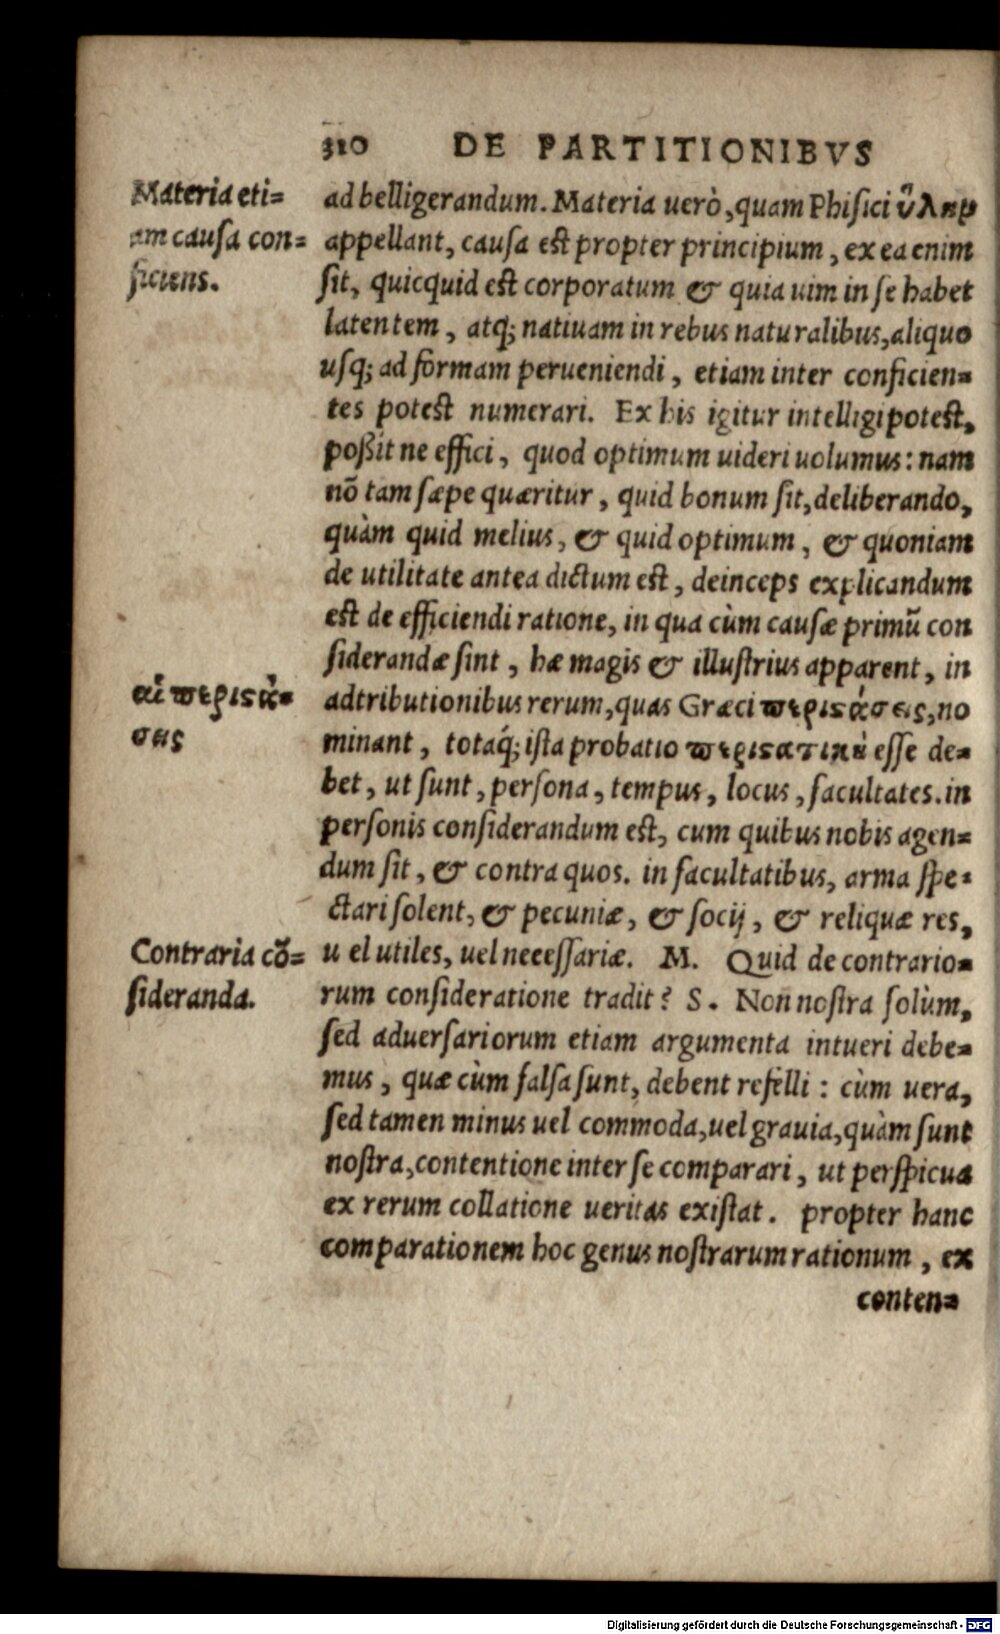 310 DE PARTITIONIBVS
Materia eti=
am causa con=
ficiens.
ad belligerandum. Materia uerò, quam Phisici ὕλην
appellant, causa est propter principium, ex ea enim
fit, quicquid est corporatum & quia uim in se habet
latentem, atq; natiuam in rebus naturalibus, aliquo
usq; ad formam perueniendi, etiam inter conficien=
tes potest numerari. Ex his igitur intelligi potest,
poßit ne effici, quod optimum uideri uolumus: nam
nõ tam sæpe quæritur, quid bonum sit, deliberando,
quàm quid melius, & quid optimum, & quoniam
de utilitate antea dictum est, deinceps explicandum
est de efficiendi ratione, in qua cùm causæ primũ con
siderandæ sint, hæ magis & illustrius apparent, in
αἱ περιϛά=
σεις
adtributionibus rerum, quas Græci περιϛάσεις, no
minant, totaq́; ista probatio περιϛατικὴ esse de=
bet, ut sunt, persona, tempus, locus, facultates. in
personis considerandum est, cum quibus nobis agen=
dum sit, & contra quos. in facultatibus, arma spe=
ctari solent, & pecuniæ, & socij, & reliquæ res,
Contraria cõ=
sideranda.
u el utiles, uel necessariæ. M. Quid de contrario=
rum consideratione tradit? S. Non nostra solùm,
sed aduersariorum etiam argumenta intueri debe=
mus, quæ cùm falsa sunt, debent refelli: cùm uera,
sed tamen minus uel commoda, uel grauia, quàm sunt
nostra, contentione inter se comparari, ut perspicua
ex rerum collatione ueritas existat. propter hanc
comparationem hoc genus nostrarum rationum, ex
conten=
Digitalisierung gefördert durch die Deutsche Forschungsgemeinschaft - DFG